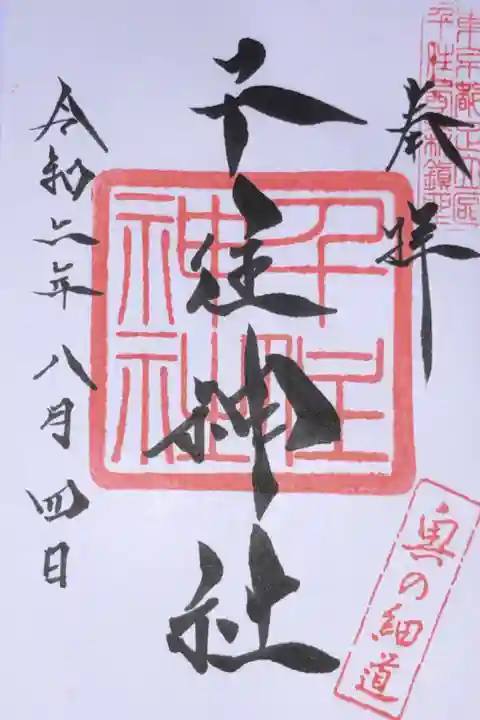 東京都足立区
千住宮元町鎮座
奉拝
千住神社
千住
神社
令和六年八月四日
奥の細道